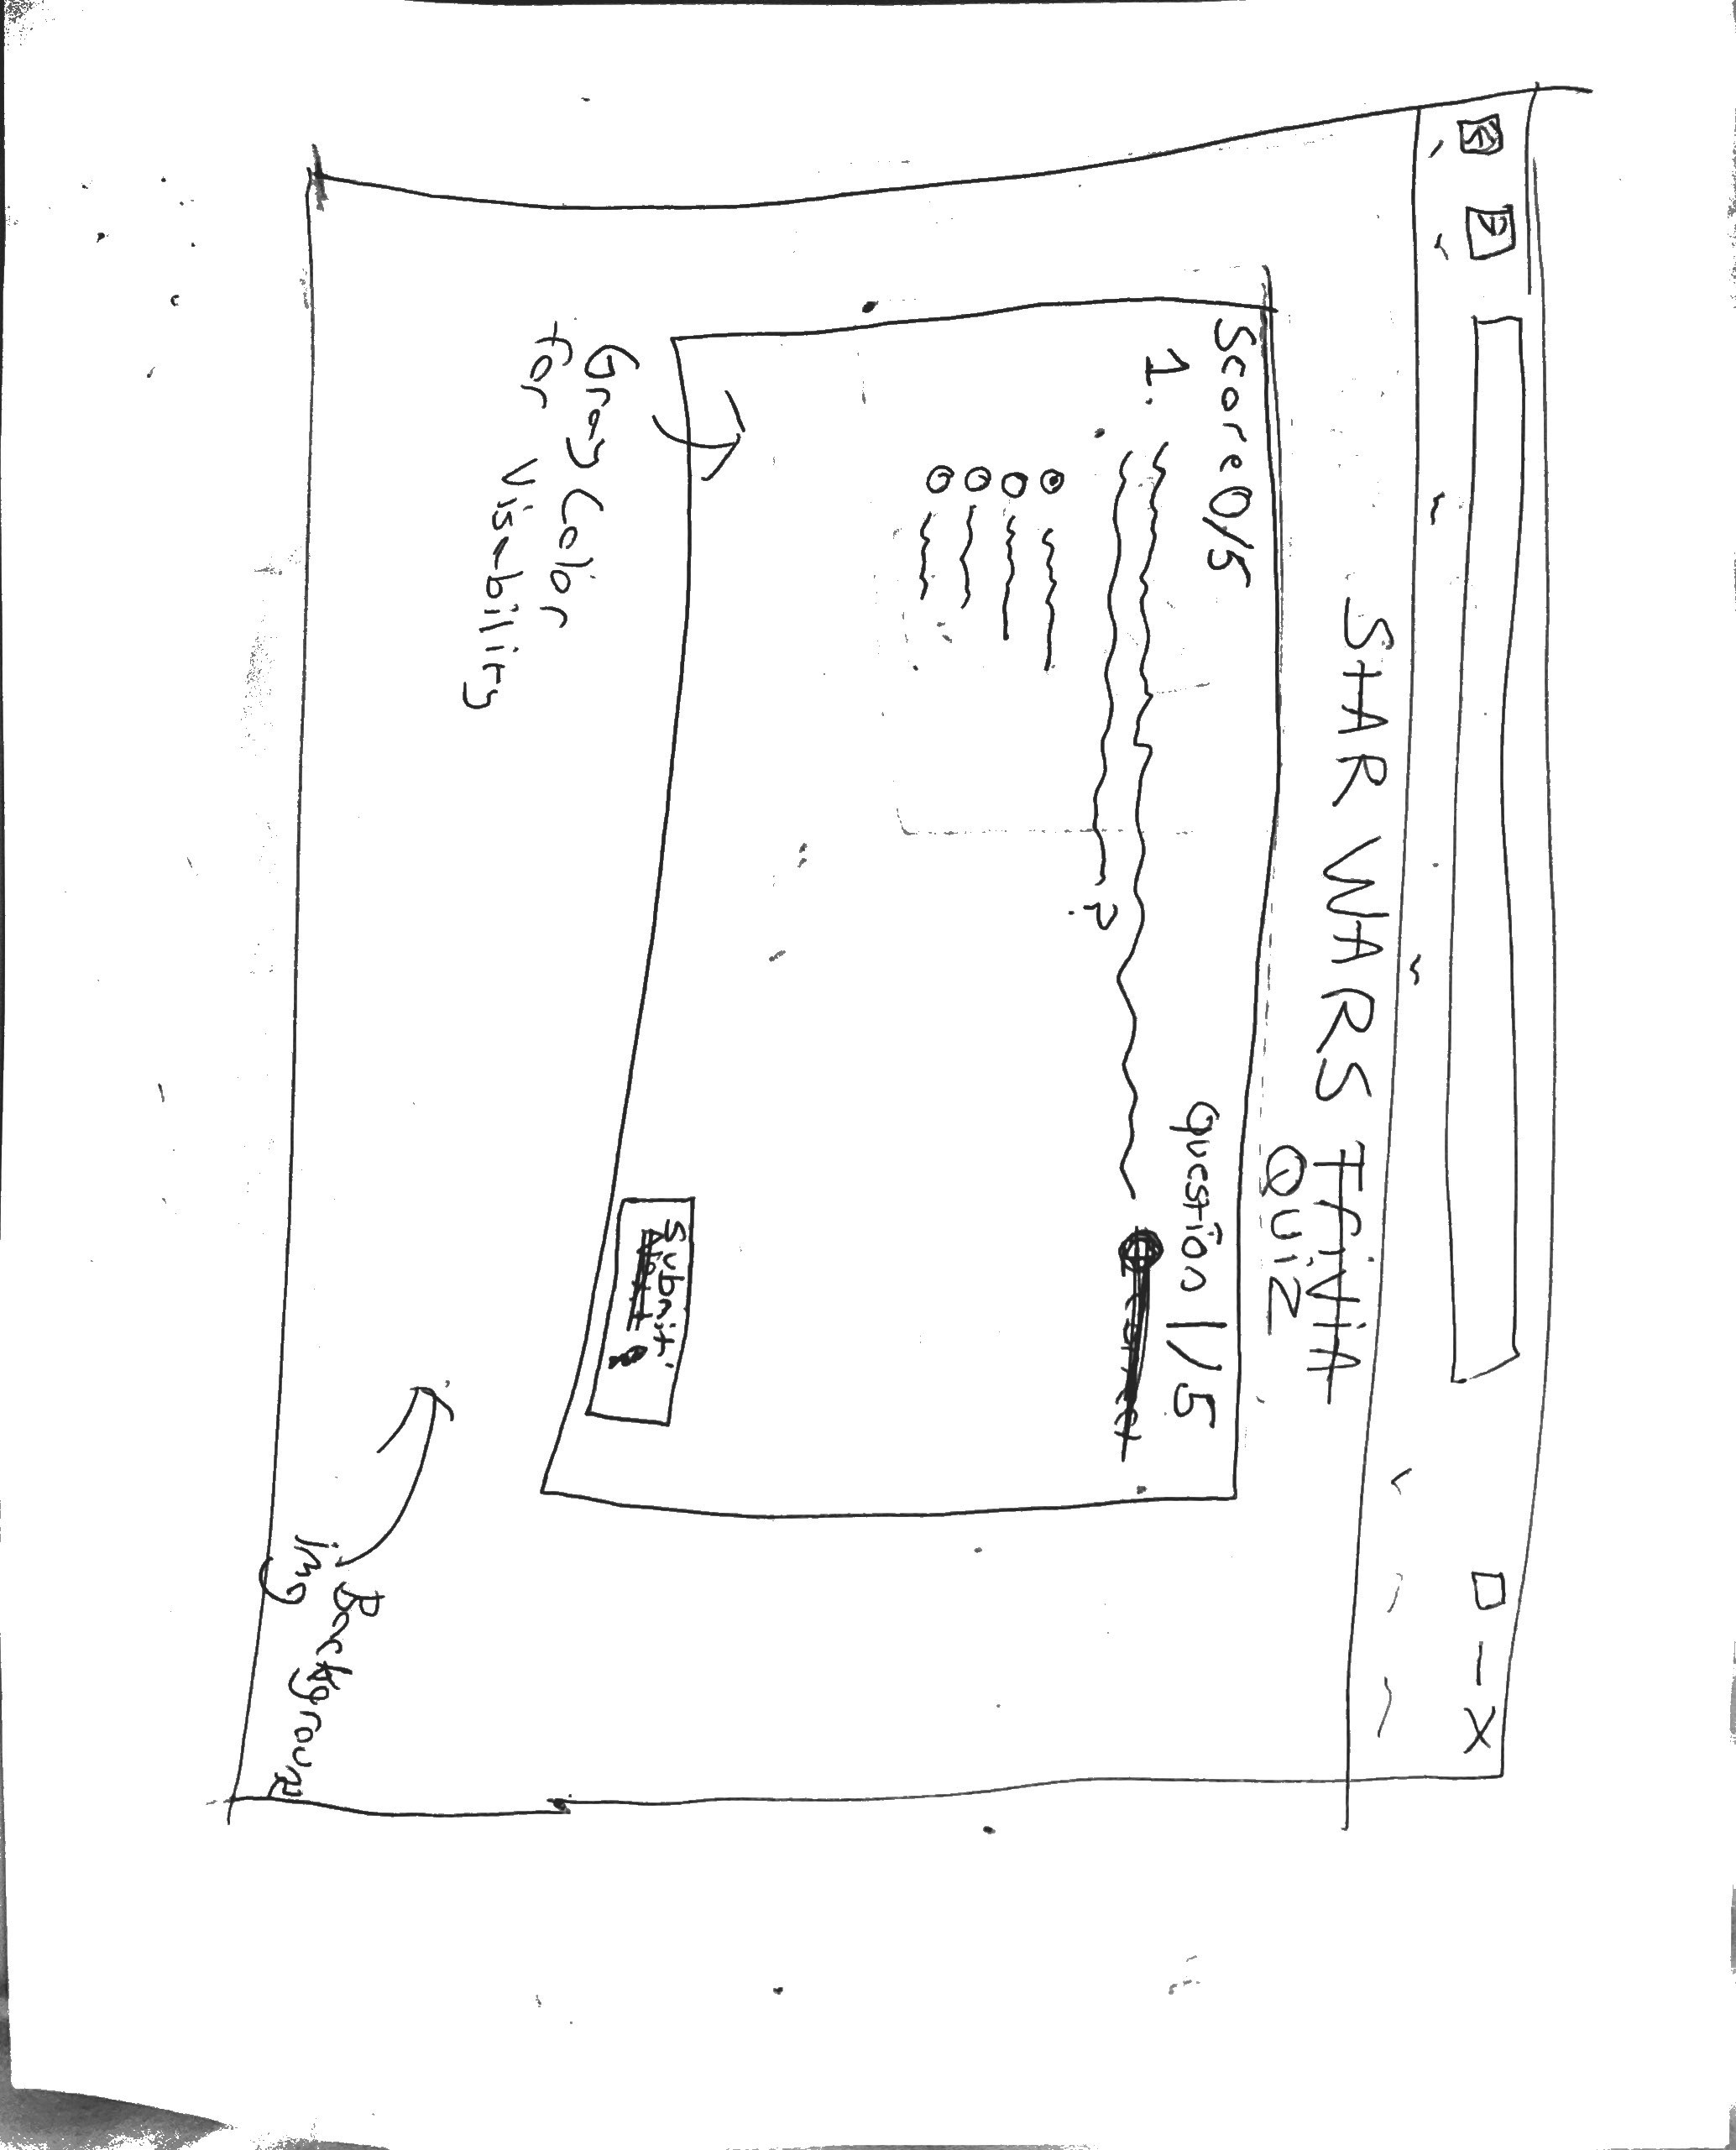 STAR WARS TRIVIA
QUIZ
Score 0/5
Question 1/5
1.
?
Submit
Gray Color
for Visability
Background
img